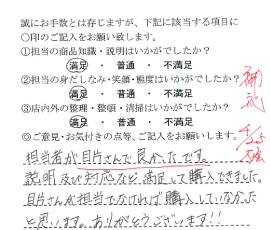 誠にお手数とは存じますが、下記に該当する項目に
○印のご記入をお願い致します。
①担当の商品知識・説明はいかがでしたか?
満足 ・ 普通 ・ 不満足
②担当の身だしなみ・笑顔・態度はいかがでしたか?
満足 ・ 普通 ・ 不満足
③店内外の整理・整頓・清掃はいかがでしたか?
満足 ・ 普通 ・ 不満足
◎ご意見・お気付きの点等、ご記入をお願いします。
担当者が貝さんで良かったです。
説明及び対応など満足して購入できました。
貝さんが担当でなければ購入していなかった
と思います。ありがとうございます!!